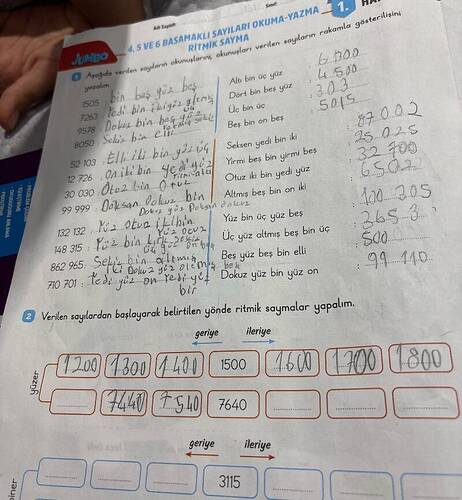 Adı Soyadı:
Sınıf:
JUMBO
4, 5 VE 6 BASAMAKLI SAYILARI OKUMA-YAZMA
RİTMİK SAYMA
1.
1 Aşağıda verilen sayıların okunuşlarını, okunuşları verilen sayıların rakamla gösterilişini
yazalım.
1505 : bin beş yüz beş
7263 : Yedi bin iki yüz
9578 : Dokuz bin beş yüz
8050 : Sekiz bin elli
52 103 : Elli iki bin yüz üç
12 726 : on iki bin yedi yüz
30 030 : Otuz bin Otuz
99 999 : Doksan Dokuz bin
Dokuz yüz doksan dokuz
132 132 : Yüz Otuz iki bin
Yüz otuz
148 315 : Yüz bin kırk sekiz
862 965 : Sekiz bin altmış
iki Dokuz yüz
710 701 : Yedi yüz on Yedi yüz
bir
Altı bin üç yüz : 6 300
Dört bin beş yüz : 4 500
Üç bin üç : 303
Beş bin on beş : 5015
Seksen yedi bin iki : 87 002
Yirmi beş bin yirmi beş : 25 025
Otuz iki bin yedi yüz : 32 700
Altmış beş bin on iki : 65 02
Yüz bin üç yüz beş : 100 305
Üç yüz altmış beş bin üç : 365 3
Beş yüz beş bin elli : 500
Dokuz yüz bin yüz on : 99 110
2 Verilen sayılardan başlayarak belirtilen yönde ritmik saymalar yapalım.
geriye ileriye
yüzer
1200 1300 1400 1500 1600 1700 1800
7440 7540 7640
geriye ileriye
3115